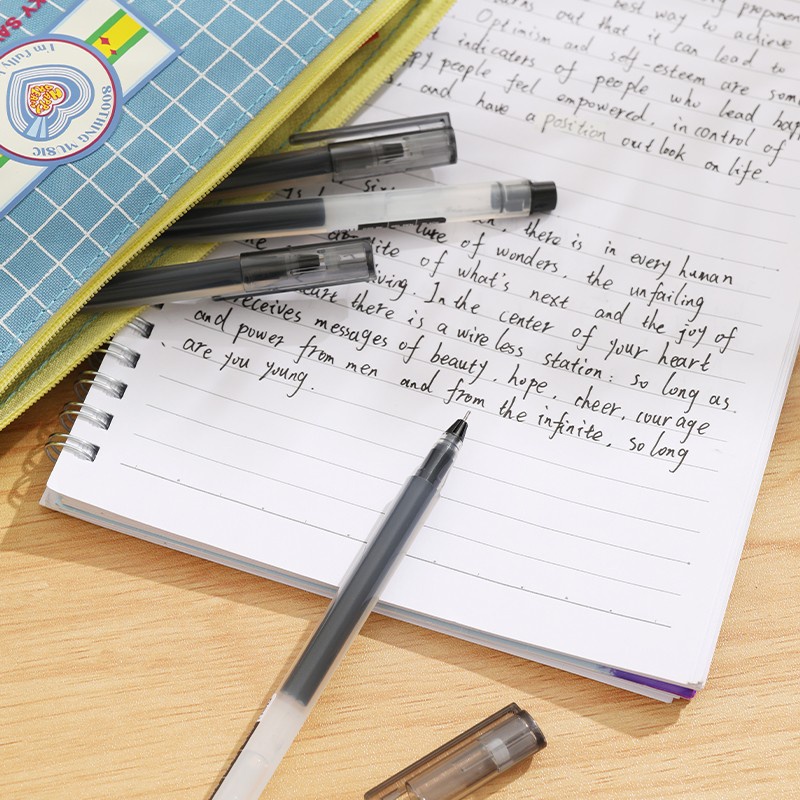 KY SA
I'm fully
SOOTHING MUSIC
best way to achieve
out that it can lead to
Optimism and self-esteem are som
indicators of people who lead hap
ppy people feel empowered, in control of
and have a position out look on life.
six
there is in every human
ture of wonders, the unfailing
of what's next and the joy of
iving. In the center of your heart
heart there is a wireless station: so long as
receives messages of beauty, hope, cheer, courage
and power from men and from the infinite, so long
are you young.